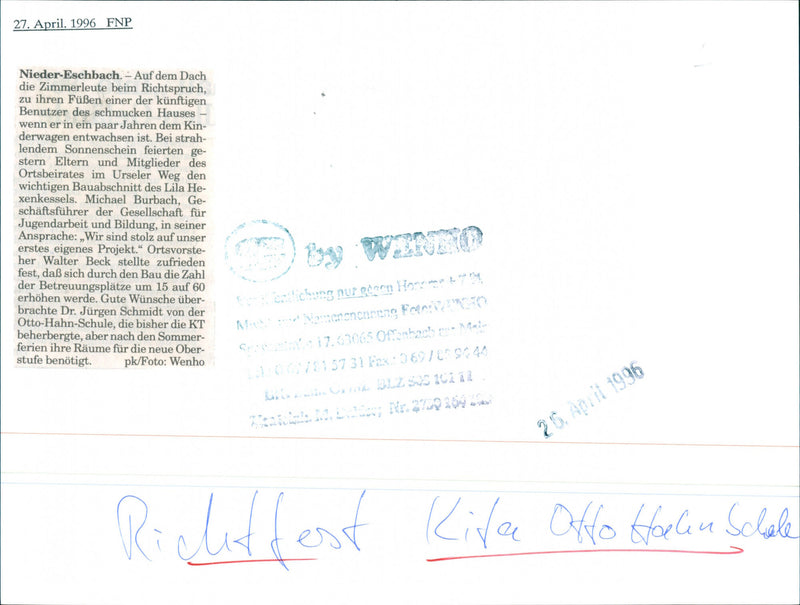 27. April. 1996 FNP
Nieder-Eschbach. – Auf dem Dach
die Zimmerleute beim Richtspruch,
zu ihren Füßen einer der künftigen
Benutzer des schmucken Hauses –
wenn er in ein paar Jahren dem Kin-
derwagen entwachsen ist. Bei strah-
lendem Sonnenschein feierten ge-
stern Eltern und Mitglieder des
Ortsbeirates im Urseler Weg den
wichtigen Bauabschnitt des Lila He-
xenkessels. Michael Burbach, Ge-
schäftsführer der Gesellschaft für
Jugendarbeit und Bildung, in seiner
Ansprache: „Wir sind stolz auf unser
erstes eigenes Projekt.“ Ortsvorste-
her Walter Beck stellte zufrieden
fest, daß sich durch den Bau die Zahl
der Betreuungsplätze um 15 auf 60
erhöhen werde. Gute Wünsche über-
brachte Dr. Jürgen Schmidt von der
Otto-Hahn-Schule, die bisher die KT
beherbergte, aber nach den Sommer-
ferien ihre Räume für die neue Ober-
stufe benötigt. pk/Foto: Wenho
by WENHO
nur gegen Honorar + 7 %
Namensnennung Foto: WENHO
17, 63065 Offenbach am Main
Fax.: 0 69 /
BLZ 505 101 11
26. April 1996
Richtfest Kita Otto Hahn Schule